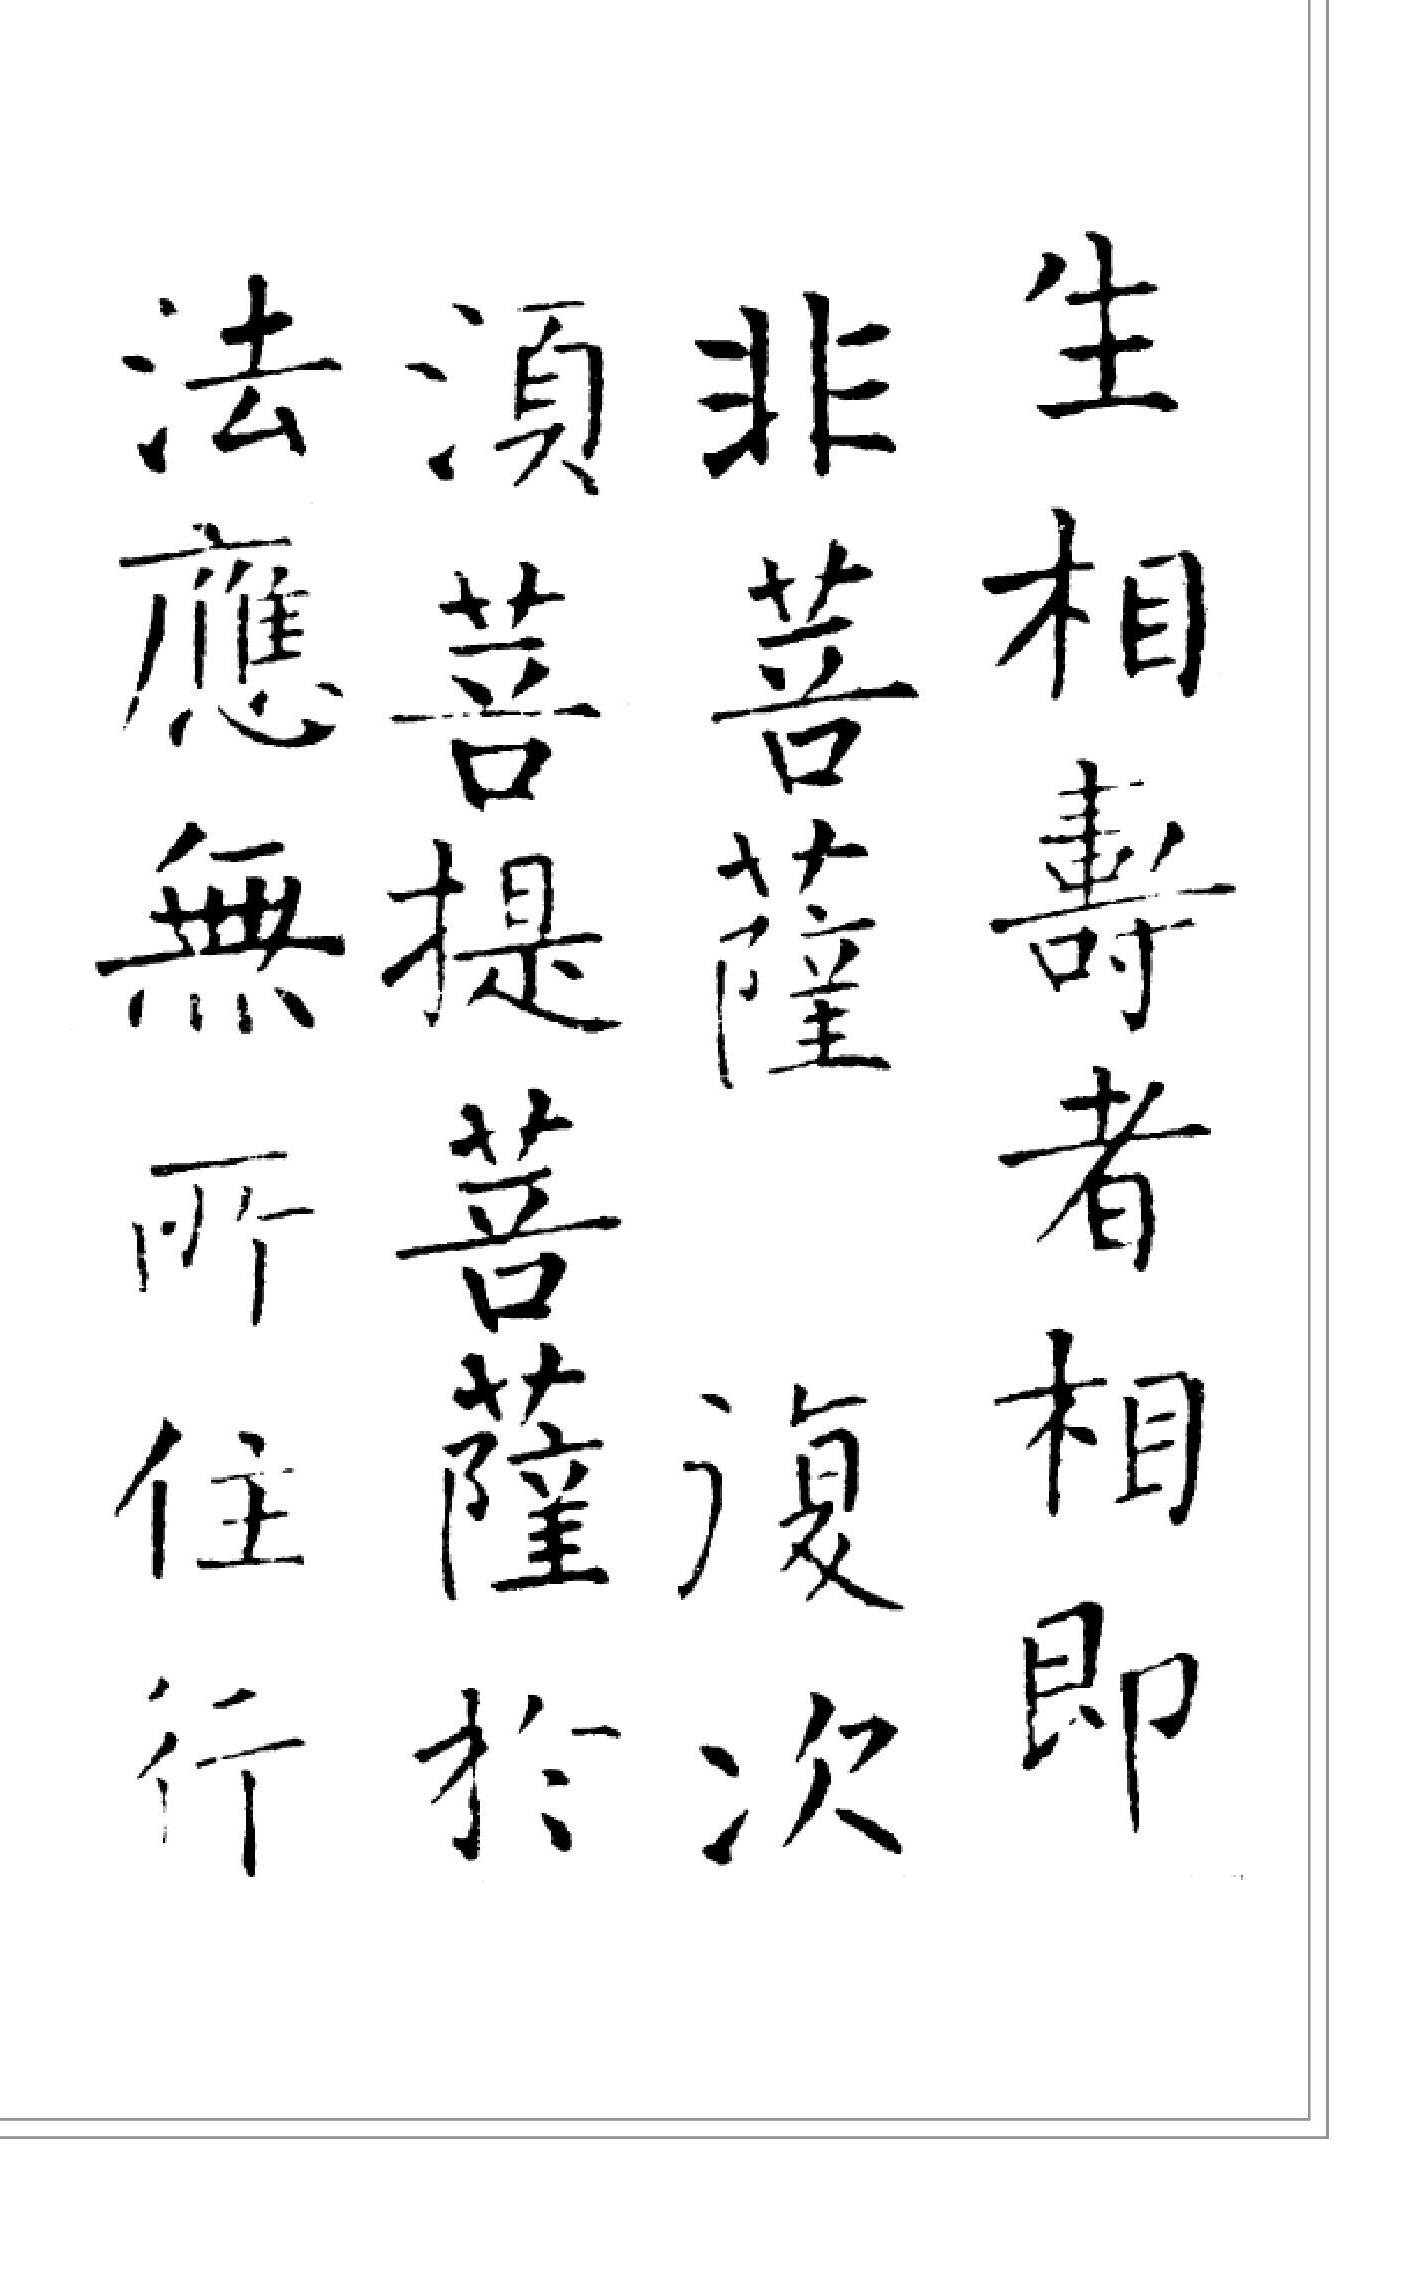 生相壽者相即
非菩薩 復次
湏菩提菩薩於
法應無所住行